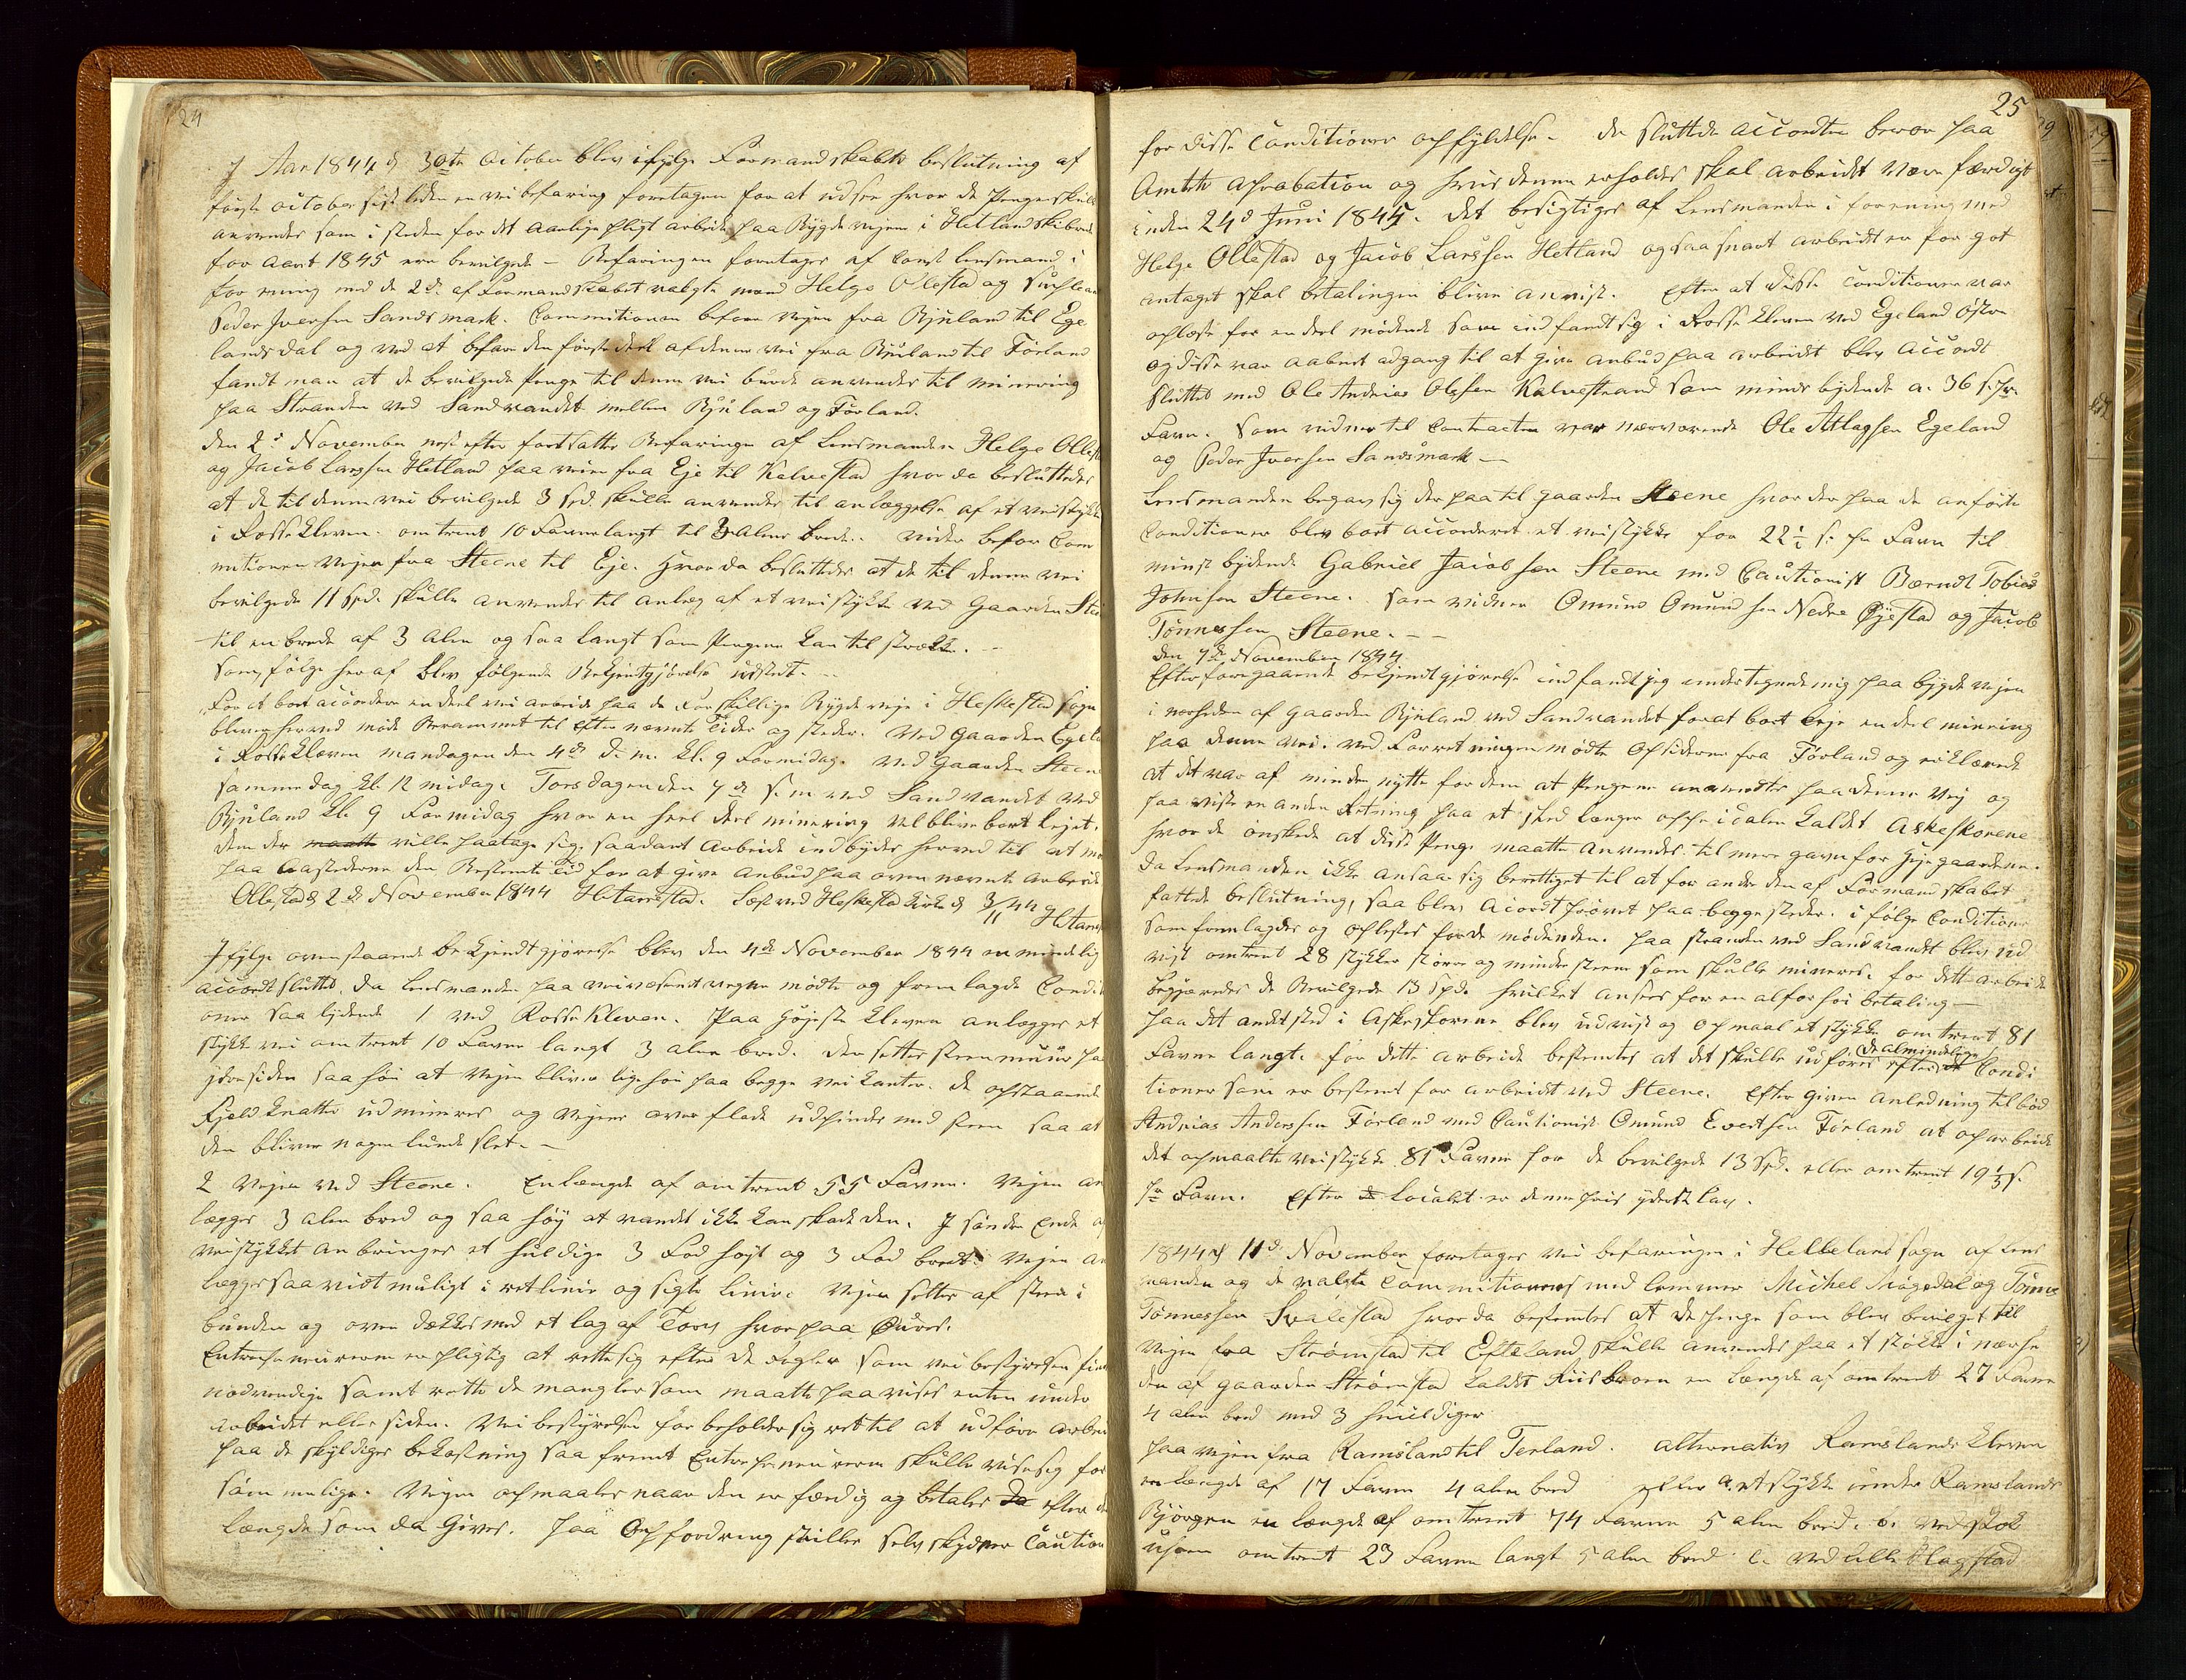 24
I Aar 1844 d 30te October blev ifølge Formandskabets beslutning af
første October sidstleden en veibefaring foretagen for at udsee hvor de Penge skulle
anvendes som i steden for det aarlige pligt arbeide paa Bygdevejene i Hetlandskibrede
for Aaret 1845 ere bevilgede – Befaringen foretages af Const Lensmand i
forening med de 2de af Formandskabet valgte mænd Helge Olestad og
Peder Iversen Sandsmark. Commitionen befoer vejen fra Bjuland til Ege
landsdal og ved at befare den første deel af denne vei fra Bjuland til Førland
fandt man at de bevilgede Penge til denne vei burde anvendes til minering
paa Stranden ved Sandvandet mellem Bjuland og Førland.
den 2d November nest efter fortsattes Befaringen af Lensmanden Helge Ollestad
og Jacob Larssen Hetland paa veien fra Eje til Kalvestad hvor da besluttedes
at de til denne vei bevilgede 3 spd. skulle anvendes til anlæggelse af et veistykke
i Rossekleven. omtrent 10 Favne langt til 3 Alens brede. videre befor Com
mitionen Vejen fra Steene til Eje. hvor da besluttedes at de til denne vei
bevilgede 11 spd. skulle anvendes til anlæg af et veistykke ved Gaarden Steene
til en brede af 3 Alen og saa langt som Pengene kan til strekke. –
Som følge her af blev følgende Bekjentgjørelse udstedt. –
For at bort accordere en deel vei arbeide paa de forskillige Bygdeveje i Heskestad Sogn
bliver herved møde Berammet til efter nævnte Tider og steder. Ved Gaarden Egeland
i Rossekleven mandagen den 4de d. m. kl. 9 Formidag. Ved Gaarden Steene
samme dag kl. 12 midag. Torsdagen den 7de s. m ved Sandvandet ved
Bjuland kl. 9 Formidag hvor en heel deel minering vel blive bort lejet.
dem der maatte ville paatage sig saadant Arbeide indbydes herved til at møde
paa Aastederne den Bestemte Tid for at give Anbud paa oven nævnte Arbeide
Ollestad d 2de November 1844 Hetamstad. Læst ved Heskestad kirke d 3/11 44
Ifølge ovenstaaende bekjendtgjørelse blev den 4de November 1844 en mindelig
accordt sluttet. da Lensmanden paa veivæsenets vegne mødte og fremlagde Condi
oner saa lydende 1. ved Rosse Kleven. Paa højeste kleven anlægges et
stykke vei omtrent 10 Favne langt 3 alen bred. der settes steenmuur paa
ydersiden saa høi at vejen bliver lige høi paa begge vei kanter. de opstaaende
Fjeld knatter udmineres og Vejens overflade udpindes med steen saa at
den bliver nogenlunde slet. –
2 Vejen ved Steene. En længde af omtrent 55 Favne. Vejen an
lægges 3 alen bred og saa høj at vandet ikke kan skade den. I søndre Ende af
veistykket anbringes et huldige 3 Fod højt og 3 Fod bredt. Vejen an
lægges saa vidt muligt i ret linie og sigte linie. Vejen settes af steen i
bunden og oven dækkes med et lag af Torv hvorpaa Øures.
Entreprenøureren er pligtig at rette sig efter de regler som vei bestyrelsen finder
nødvendige samt rette de mangler som maatte paavises enten under
arbeidet eller siden. Vei bestyrelsen forbeholder sig ret til at udføre arbeidet
paa de skyldiges bekostning saa fremt Entreprenøureren skulle vise sig for
sømmelig. Vejen opmaales naar den er færdig og betales da efter den
længde som da Gives. Paa Opfordring stilles selvskyldner Caution
25
for disse Conditioners opfyldelse. den sluttede accordten beroer paa
Amtets Aprobation og hvis denne erholdes skal arbeidet være færdigt
inden 24d Juni 1845. det besigtiges af Lensmanden i forening med
Helge Ollestad og Jacob Larssen Hetland og saa snart arbeidet er for got
antaget skal betalingen blive anvist. Efter at disse Conditioner var
oplæste for en deel mødende som indfandt sig i Rosse kleven ved Egeland Østre
og disse var aabnet adgang til at give anbud paa arbeidet blev Accordt
sluttet med Ole Andreas Olssen Kalvestrand som mindstbydende a. 36 s. pr.
Favn. Som vidner til Contracten var nærværende Ole Atlagsen Egeland
og Peder Iversen Sandsmark –
Lensmanden begav sig der paa til gaarden Steene hvor der paa de anførte
Conditioner blev bort accorderet et veistykke for 22½ s. pr. Favn til
mindst bydende Gabriel Jacobsen Steene med Cautionist Berndt Tobias
Johnsen Steene. Som vidner Omund Omundsen Nedre Øyestad og Jacob
Tønnessen Steene. – –
den 7de November 1844
Efter foregaaende bekjendtgjørelse indfandt jeg undertegnede mig paa bygdevejen
i nærheden af gaarden Bjuland ved Sandvandet for at bort leje en deel minering
paa denne vei. ved Forretningen mødte Opsiderne fra Førland og erklærede
at det var af minder nytte for dem at Pengene anvendtes paa denne Vej og
paa viste en anden Retning paa et sted længer oppe i dalen kaldet Askeskorene
hvor de ønskede at disse Penge maatte anvendes til mere gavn for gaardene.
da Lensmanden ikke ansaae sig berettiget til at forandre den af Formandskabet
fattede beslutning, saa blev Acordt prøvet paa begge steder. i følge Conditioner
som fremlagdes og oplestes for de mødende. Paa stranden ved Sandvandet blev ud
vist omtrent 28 stykker større og mindre steene som skulle mineres. for dette arbeide
begjæredes de Bevilgede 13 Spd. hvilket ansees for en alfor høi betaling –
Paa det andet sted i Askeskorene blev udvist og opmaalt et stykke omtrent 81
Favne langt. for dette arbeide bestemtes at det skulle udføres efter de almindelige Condi
tioner som er bestemt for arbeidet ved Steene. Efter given Anledning tilbød
Andreas Anderssen Førland med Cautionist Omund Evertsen Førland at oparbeide
det opmaalte veistykke 81 Favne for de bevilgede 13 Spd. eller omtrent 19⅓ s.
pr. Favn. Efter Localet er denne priis yderst lav.
1844 d 11d November foretages vei befaringen i Helleland sogn af Lens
manden og de valgte Commitionens medlemmer Michel Møgedal og Tønnes
Tønnessen Svalestad hvor da bestemtes at de penge som blev bevilget til
Vejen fra Strømstad til Efteland skulle anvendes paa et støkke i nærhe
den af gaarden Strømstad kaldet Riisbroen en længde af omtrent 27 Favne
4 alen bred med 3 huldiger
Paa vejen fra Ramsland til Terland. alternativ Ramslands kleven
en længde af 17 Favne 4 alen bred eller a. et stykke under Ramslands
Bjørgen en længde af omtrent 74 Favne 5 alen bred. b. ved
omtrent 23 Favne langt 5 alen bred c. ved lille Slagstad